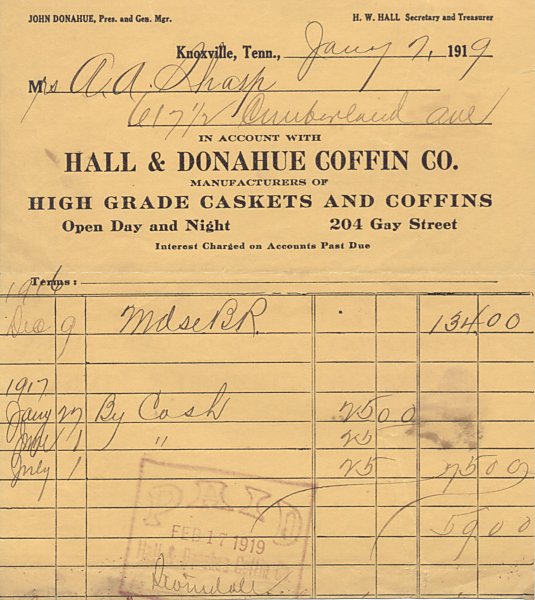 JOHN DONAHUE, Pres. and Gen. Mgr. H. W. HALL Secretary and Treasurer
Knoxville, Tenn., Jany 7, 1919
Mrs A. A. Sharp
617 1/2 Cumberland ave
IN ACCOUNT WITH
HALL & DONAHUE COFFIN CO.
MANUFACTURERS OF
HIGH GRADE CASKETS AND COFFINS
Open Day and Night 204 Gay Street
Interest Charged on Accounts Past Due
Terms:
1916
Dec 9 Mdse B.R. 134.00
1917
Jany 27 By Cash 25 00
1 " 25
July 1 25 75 00
59 00
PAID
FEB 17 1919
Hall & Donahue Coffin Co.